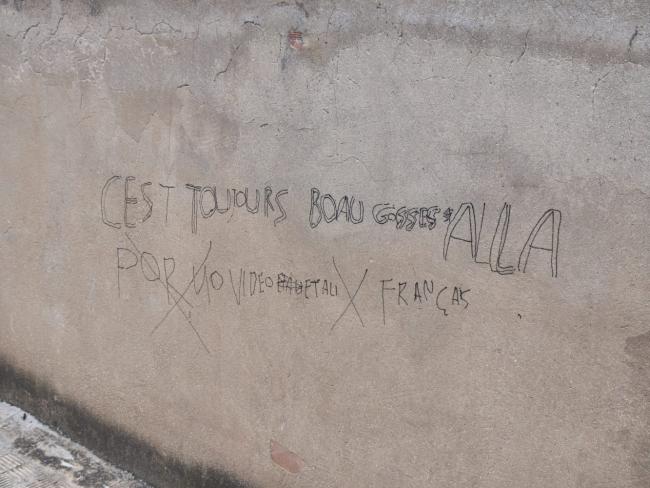 C'EST TOUJOURS BOAU GOSSES ALLA
POR VIDEO FRANÇAS